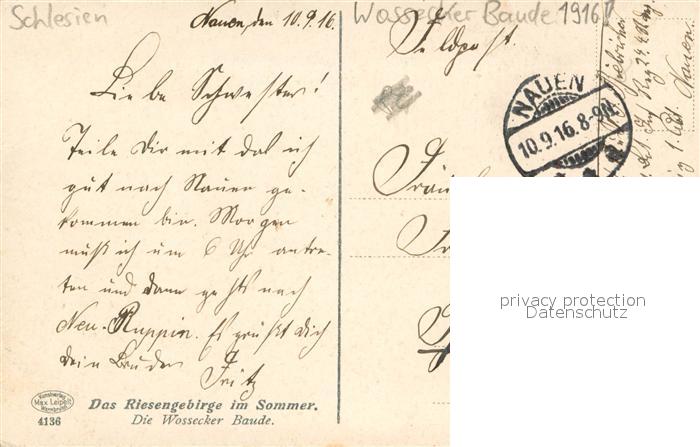 Schlesien
Wossecker Baude 1916
Nauen, den 10.9.16.
Liebe Schwester!
Teile Dir mit daß ich
gut nach Nauen ge-
kommen bin. Morgen
muß ich um 6 Uhr antre-
ten und dann gehts nach
Neu-Ruppin. Es grüßt Dich
dein Bruder
Fritz
Kunstverlag
Max Leipelt
Warmbrunn
4136
Das Riesengebirge im Sommer.
Die Wossecker Baude.
Feldpost.
NAUEN
10.9.16.8-9N.
Nauen
privacy protection
Datenschutz